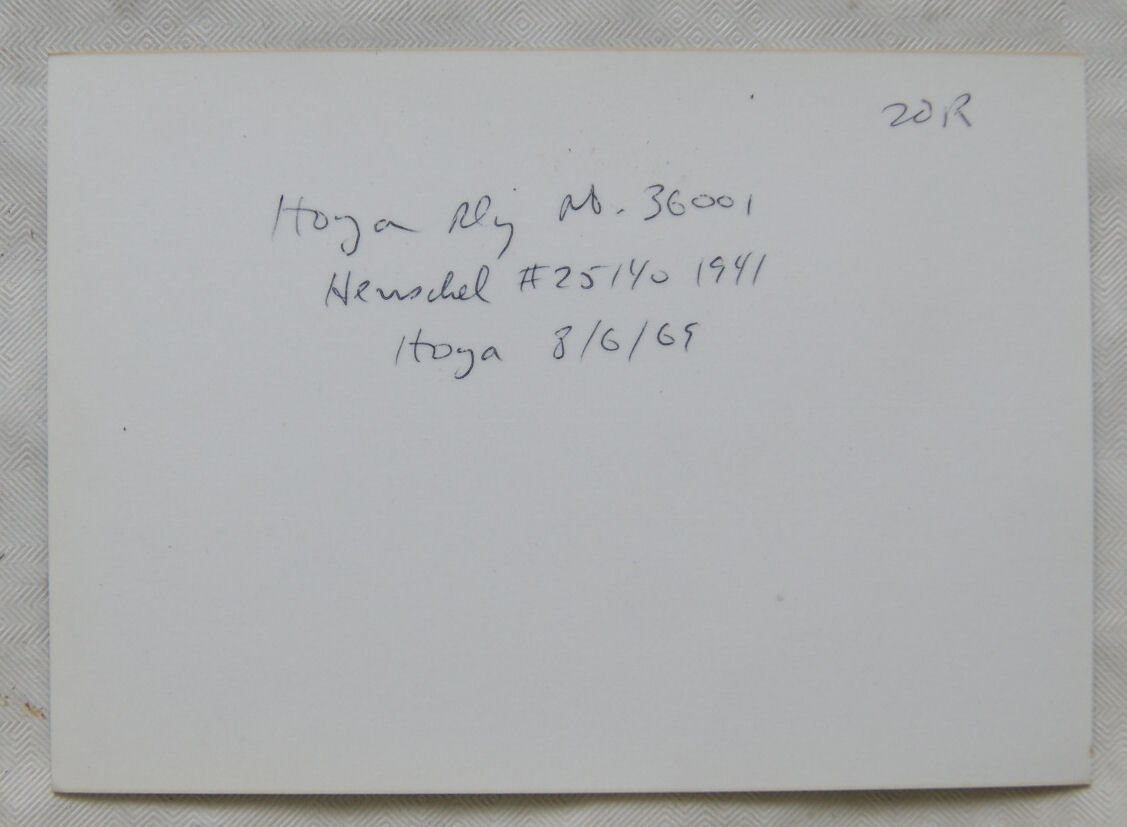 20R
Hoya Rly No. 36001
Henschel #25140 1941
Hoya 8/6/69